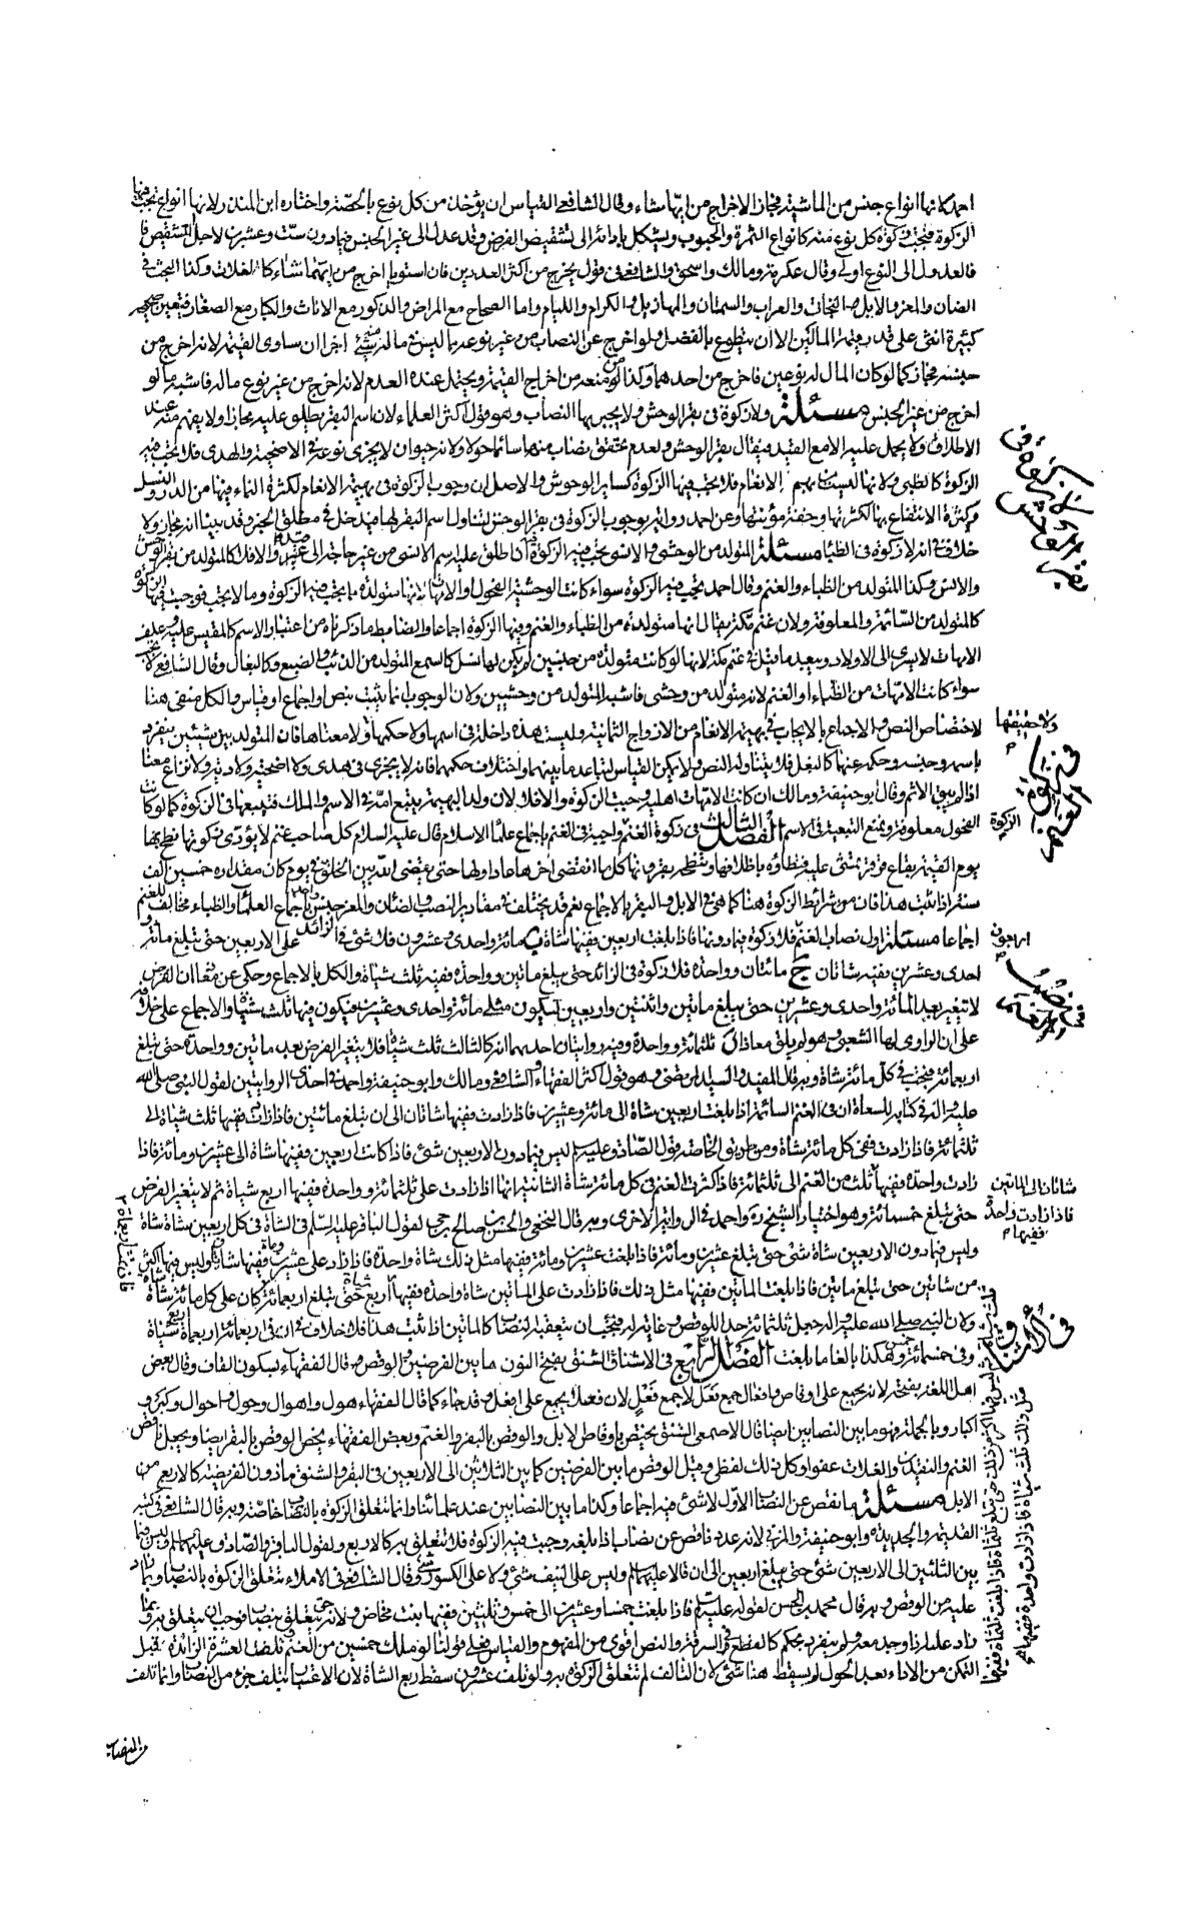 احمد لانها انواع جنس من الماشية فجاز الاخراج من ايها شاء وقال الشافعي القياس ان يؤخذ من كل نوع بالحصة واختاره ابن المنذر لانها انواع تجب فيها
الزكوة فتجب زكوة كل نوع منه كانواع الثمرة والحبوب ويشكل بادائه الى تشقيص الفرض وقد عدل الى غير الجنس فيما دون ست وعشرين لاجل التشقيص فا
فالعدول الى النوع اولى وقال عكرمة ومالك واسحق والشافعي في قول يخرج من اكثر العددين فان استويا اخرج من ايهما شاء كالغلات وكذا البحث في
الضان والمعز والابل البخات والعراب والسمان والمهازيل والكرام واللئام واما الصحاح مع المراض والذكور مع الاناث والكبار مع الصغار فيتعين صحيحة
كبيرة انثى على قدر قيمة المالين الا ان يتطوع بالفضل ولو اخرج عن النصاب من غير نوعه ما ليس في ماله منه شئ اجزأ ان ساوى القيمة لانه اخرج من
جنسه فجاز كما لو كان المال له نوعين فاخرج من احدهما وكذا لو نقص منعه من اخراج القيمة ويحتمل عنده العدم لانه اخرج من غير نوع ماله فاشبه ما لو
اخرج من غير الجنس مسئلة ولا زكوة في بقر الوحش ولا يجب بها النصاب وهو قول اكثر العلماء لان اسم البقر يطلق عليه مجازا ولا يفهم منه عند
الاطلاق ولا يحمل عليه الا مع القيد فيقال بقر الوحش ولعدم تحقق نصاب منها سائما حولا ولانه حيوان لا يجزى نوعه في الاضحية والهدى فلا يجب فيه
الزكوة كالظبي ولانها ليست من بهيمة الانعام فلا يجب فيها الزكوة كسائر الوحوش والاصل ان وجوب الزكوة في بهيمة الانعام لكثرة النماء فيها من الدر والنسل
وكثرة الانتفاع بها لكثرتها وخفة مؤنتها وعن احمد رواية بوجوب الزكوة في بقر الوحش لتناول اسم البقر لها فيدخل في مطلق الخبر وقد بينا انه مجاز ولا
خلاف في انه لا زكوة في الظباء مسئلة المتولد من الوحشي والانسي يجب فيه الزكوة ان اطلق عليه اسم الانسي من غير حاجة الى قيد والا فلا كالمتولد من بقر الوحش
والانس وكذا المتولد من الظباء والغنم وقال احمد يجب فيه الزكوة سواء كانت الوحشية الفحول او الامهات لانها متولدة مما يجب فيه الزكوة وما لا يجب فوجب فيها الزكوة
كالمتولد من السائمة والمعلوفة ولان غنم مكة يقال انها متولدة من الظباء والغنم وفيها الزكوة اجماعا والضابط ما ذكرناه من اعتبار الاسم كالمقيس عليه وعلف
الامهات لا يسرى الى الاولاد ويبعد ما قيل في غنم مكة لانها لو كانت متولدة من جنسين لم يكن لها نسل كالسمع المتولد من الذئب والضبع وكالبغال وقال الشافعي لا يجب
سواء كانت الامهات من الظباء او الغنم لانه متولد من وحشي فاشبه المتولد من وحشيين ولان الوجوب انما يثبت بنص او اجماع او قياس والكل منفي هنا
لاختصاص النص والاجماع بالايجاب في بهيمة الانعام من الازواج الثمانية وليست هذه داخلة في اسمها ولا حكمها ولا معناها فان المتولد بين شيئين ينفرد
باسمه وجنسه وحكمه عنها كالبغل فلا يتناوله النص ولا يمكن القياس لتباعد ما بينهما واختلاف حكمهما فانه لا يجزى في هدى ولا اضحية ولا دية ولا نزاع معنا
اذا لم يبق الاسم وقال ابو حنيفة ومالك ان كانت الامهات اهلية وجبت الزكوة والا فلا لان ولد البهيمة يتبع امه في الاسم والملك فيتبعها في الزكوة كما لو كانت
الفحول معلوفة ويمنع التبعية في الاسم الفصل الثالث في زكوة الغنم واجبة في الغنم باجماع علماء الاسلام قال عليه السلام كل صاحب غنم لا يؤدى زكوتها بطح بها
يوم القيمة بقاع قرقر يمشى عليه فتطاؤه باظلافها وتنطحه بقرونها كلما انقضى آخرها عاد اولها حتى يقضى الله بين الخلق في يوم كان مقداره خمسين الف
سنة اذا ثبت هذا فان من شرائط الزكوة هنا كما هي في الابل والبقر بالاجماع نعم قد يختلف في مقادير النصب والضأن والمعز جنس واحد باجماع العلماء والظباء مخالف للغنم
اجماعا مسئلة اول نصاب الغنم فلا زكوة فيما دونها فاذا بلغت اربعين ففيها شاة ب مائة واحدى وعشرون فلا شئ في الزائد على الاربعين حتى تبلغ مائة و
احدى وعشرين ففيه شاتان ج مائتان وواحدة فلا زكوة في الزائد حتى يبلغ مائتين وواحدة ففيه ثلث شياة والكل بالاجماع وحكى عن معاذ ان الفرض
لا يتغير بعد المائة واحدى وعشرين حتى يبلغ مائتين واثنتين واربعين ليكون مثلي مائة واحدى وعشرين فيكون فيها ثلث شياة والاجماع على خلافه
على ان الراوى لها الشعبي وهو لم يلق معاذا د ثلثمائة وواحدة وفيه روايتان احديهما انه كالثالث ثلث شياة فلا يتغير الفرض بعد مائتين وواحدة حتى يبلغ
اربعمائة فيجب في كل مائة شاة وبه قال المفيد والسيد المرتضى وهو قول اكثر الفقهاء والشافعي ومالك وابو حنيفة واحمد في احدى الروايتين لقول النبي صلى الله
عليه واله في كتابه للسعاة ان في الغنم السائمة اذا بلغت اربعين شاة الى مائة وعشرين فاذا زادت ففيها شاتان الى ان تبلغ مائتين فاذا زادت ففيها ثلث شياة الى
ثلثمائة فاذا زادت ففي كل مائة شاة ومن طريق الخاصة قول الصادق عليه السلام ليس فيما دون الاربعين شئ فاذا كانت اربعين ففيها شاة الى عشرين ومائة فاذا
زادت واحدة ففيها ثلث من الغنم الى ثلثمائة فاذا كثرت الغنم في كل مائة شاة الثانية انها اذا زادت على ثلثمائة وواحدة ففيها اربع شياة ثم لا يتغير الفرض
حتى تبلغ خمسمائة وهو اختيار الشيخ ره واحمد في الرواية الاخرى وبه قال النخعي والحسن بن صالح بن حي لقول الباقر عليه السلم في الشاة في كل اربعين شاة شاة
وليس فيما دون الاربعين شاة شئ حتى تبلغ عشرين ومائة فاذا بلغت عشرين ومائة ففيها مثل ذلك شاة واحدة فاذا زاد على عشرين ومائة ففيها شاتان وليس فيها اكثر
من شاتين حتى تبلغ مائتين فاذا بلغت المائتين ففيها مثل ذلك فاذا زادت على المائتين شاة واحدة ففيها اربع شياة حتى يبلغ اربعمائة كان على كل مائة شاة
ولان النبي صلى الله عليه واله جعل ثلثمائة حدا للوقص وغاية له فيجب ان يتعقبه النصاب كالمائتين اذا ثبت هذا فلا خلاف في ان في اربعمائة اربعة شياة
وفي خمسمائة خمس وهكذا بالغا ما بلغت الفصل الرابع في الاشناق الشنق بفتح النون ما بين الفرضين والوقص و قال الفقهاء بسكون القاف وقال بعض
اهل اللغة بفتحه لانه يجمع على اوقاص وافعال جمع فَعَل لا جمع فَعْل لان فعلا يجمع على افعل وقد جاء كما قال الفقهاء هول واهوال وحول واحوال وكبر و
اكبار وبالجملة فهو ما بين النصابين ايضا قال الاصمعي الشنق يختص باوقاص الابل والوقص بالبقر والغنم وبعض الفقهاء يخص الوقص بالبقر ايضا ويجعل ناقص
الغنم والنقدين والغلات عفوا وكل ذلك لفظي وقيل الوقص ما بين الفرضين كما بين الثلاثين الى الاربعين في البقر والشنق ما دون الفريضة كالاربع من
الابل مسئلة ما نقص عن النصاب الاول لا شئ فيه اجماعا وكذا ما بين النصابين عند علمائنا وانما تتعلق الزكوة بالنصاب خاصة وبه قال الشافعي في كتبه
القديمة والجديدة وابو حنيفة والمزني لانه عدد ناقص عن نصاب اذا بلغه وجبت فيه الزكوة فلا تتعلق به كالاربع ولقول الباقر والصادق عليهما السلم وليس فيما
بين الثلثين الى الاربعين شئ حتى يبلغ اربعين الى ان قالا عليهما السلم وليس على النيف شئ ولا على الكسور شئ وقال الشافعي في الاملاء تتعلق الزكوة بالنصاب وبما زاد
عليه من الوقص وبه قال محمد بن الحسن لقوله عليه السلم فاذا بلغت خمسا وعشرين الى خمس وثلثين ففيها بنت مخاض ولانه حق يتعلق بنصاب فوجب ان يتعلق به وبما
زاد عليه اذا وجد معه ولم ينفرد بحكم كالقطع في السرقة والنص اقوى من المفهوم والقياس فعلى قولنا لو ملك خمسين من الغنم وتلفت العشرة الزائدة قبل
التمكن من الاداء بعد الحول لم يسقط هنا شئ لان التالف لم تتعلق الزكوة به ولو تلف عشرون سقط ربع الشاة لان الاعتبار بتلف جزء من النصاب وانما تلف
من النصاب
في ان لا زكوة في
بقر الوحش
ولا حقيقتها
في زكوة الغنم
الزكوة
اربعون
في نصب
الغنم
شاتان الى المائتين
فاذا زادت واحدة
ففيها
في الاشناق
مثل ذلك ثلث شياة فاذا زادت واحدة ففيها